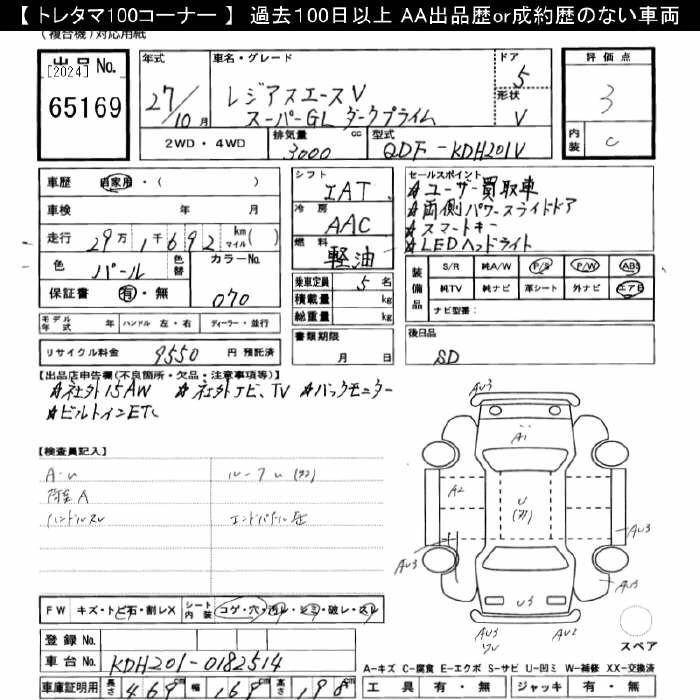 【 トレタマ100コーナー 】 過去100日以上 AA出品歴or成約歴のない車両
(複合機)対応用紙
出品No.
[2024]
65169
年式
27/10月
車名・グレード
レジアスエースV
スーパーGL ダークプライム
ドア
5
形状
V
評価点
3
内装
C
2WD・4WD
排気量
3000
cc
型式
QDF-KDH201V
車歴
自家用・( )
車検 年 月
走行 29万1千692 km マイル( )
色 パール 色替
カラーNo.
070
保証書 有・無
シフト
IAT
冷房
AAC
燃料
軽油
乗車定員 5 名
積載量 kg
総重量 kg
セールスポイント
☆ユーザー買取車
☆両側パワースライドドア
☆スマートキー
☆LEDヘッドライト
装備品
S/R 純A/W P/S P/W ABS
純TV 純ナビ 革シート 外ナビ エアB
ナビ型番:
モデル年式 年 ハンドル 左・右 ディーラー・並行
リサイクル料金 9550 円 預託済
書類期限
月 日
後日品
SD
【出品店申告欄(不良箇所・欠品・注意事項等)】
☆社外15AW ☆社外ナビ、TV ☆バックモニター
☆ビルトインETC
【検査員記入】
A・U
荷室A
ハンドルスレ
AU3
A1
A2
U
AU3
AU3
U3
AU3
AU2
FW キズ・トビ石・割レX
シート内装 コゲ・穴・汚レ・シミ・破レ・スレ
登録No.
車台No. KDH201-0182514
車庫証明用 長さ 469cm 幅 169cm 高さ 198cm
スペア
A-キズ C-腐食 E-エクボ S-サビ U-凹ミ W-補修 XX-交換済
工具 有・無 ジャッキ 有・無